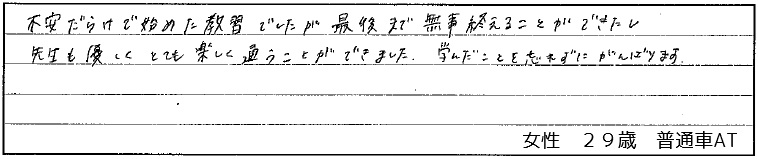 不安だらけで始めた教習でしたが最後まで無事終えることができたし
先生も優しくとても楽しく通うことができました。学んだことを忘れずにがんばります。
女性 29歳 普通車AT